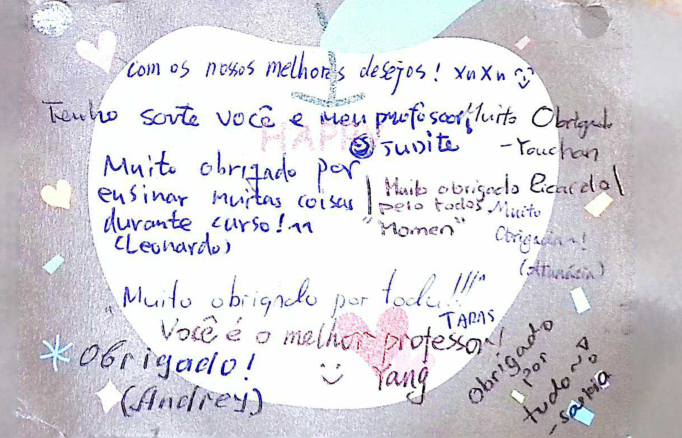 com os nossos melhores desejos! XuXu
Tenho sorte você e meu professor!
☺ JUDITE
HAPPY
Muito Obrigado
-Youchan
Muito obrigado por
ensinar muitas coisas
durante curso!
(Leonardo)
Muito obrigado Ricardo!
pelo todos
"Momen"
Muito
Obrigada
(Atanásia)
Muito obrigado por todu!!!
TARAS
Você é o melhor professor!
Yang
Obrigado!
(Andrey)
obrigado
por
tudo~